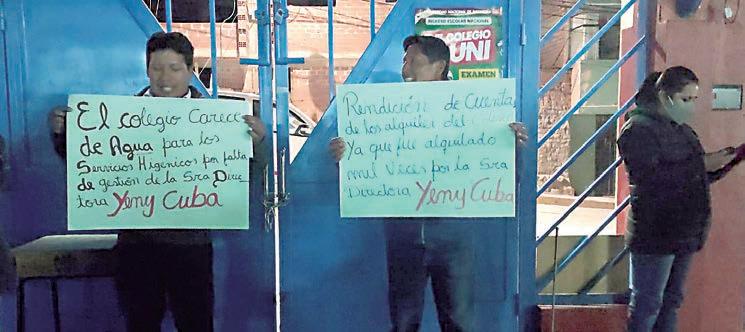 El colegio Carece
de Agua para los
Servicios Higenicos por falta
de gestión de la Sra Direc-
tora Yeny Cuba
Rendición de Cuenta
de los alquiler del
Ya que fue alquilado
mil veces por la Sra
Directora Yeny Cuba
REGISTRO ESCOLAR NACIONAL
EL COLEGIO
UNI
EXAMEN